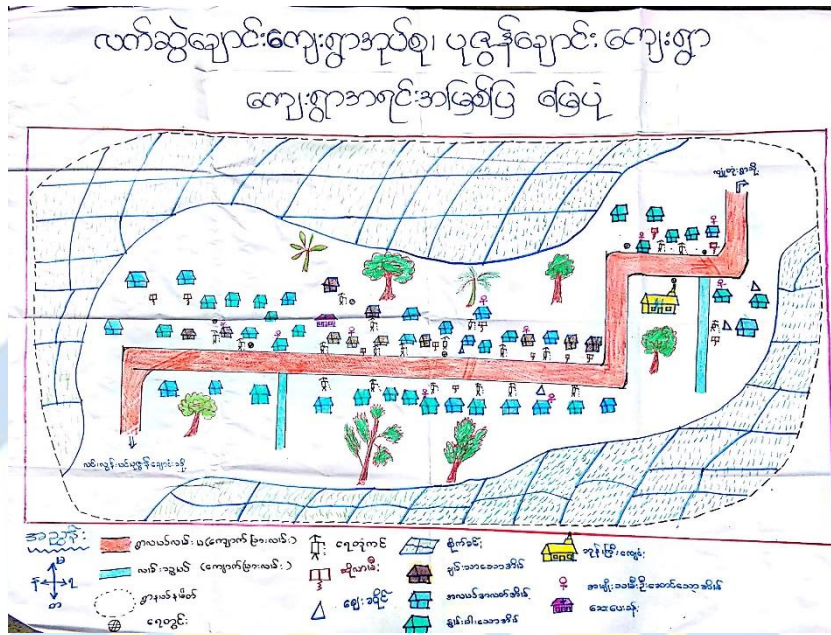 လက်ဆွဲချောင်းကျေးရွာအုပ်စု၊ ပုဇွန်ချောင်း ကျေးရွာ
ကျေးရွာအရင်းအမြစ်ပြ မြေပုံ
အညွှန်း
ရွာလယ်လမ်းမ(ကျောက်ခြားလမ်း)
လမ်းသွယ် (ကျောက်ခြားလမ်း)
ရွာနယ်နမိတ်
ရေတွင်း
ရေတုံကင်
ဆိုလာမီး
ဈေးဆိုင်
စိုက်ခင်း
ချမ်းသာသောအိမ်
အလယ်အလတ်အိမ်
နွမ်းပါးသောအိမ်
ဘုန်းကြီးကျောင်း
အမျိုးသမီးဦးဆောင်သောအိမ်
ဆေးပေးခန်း